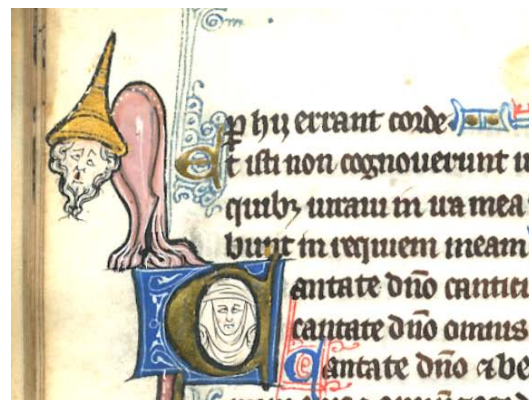 p hii errant corde
Et isti non cognouerunt
quibz iuraui in ira mea
bunt in requiem meam
Cantate dno cantic
cantate dno omnis
Cantate dno et be